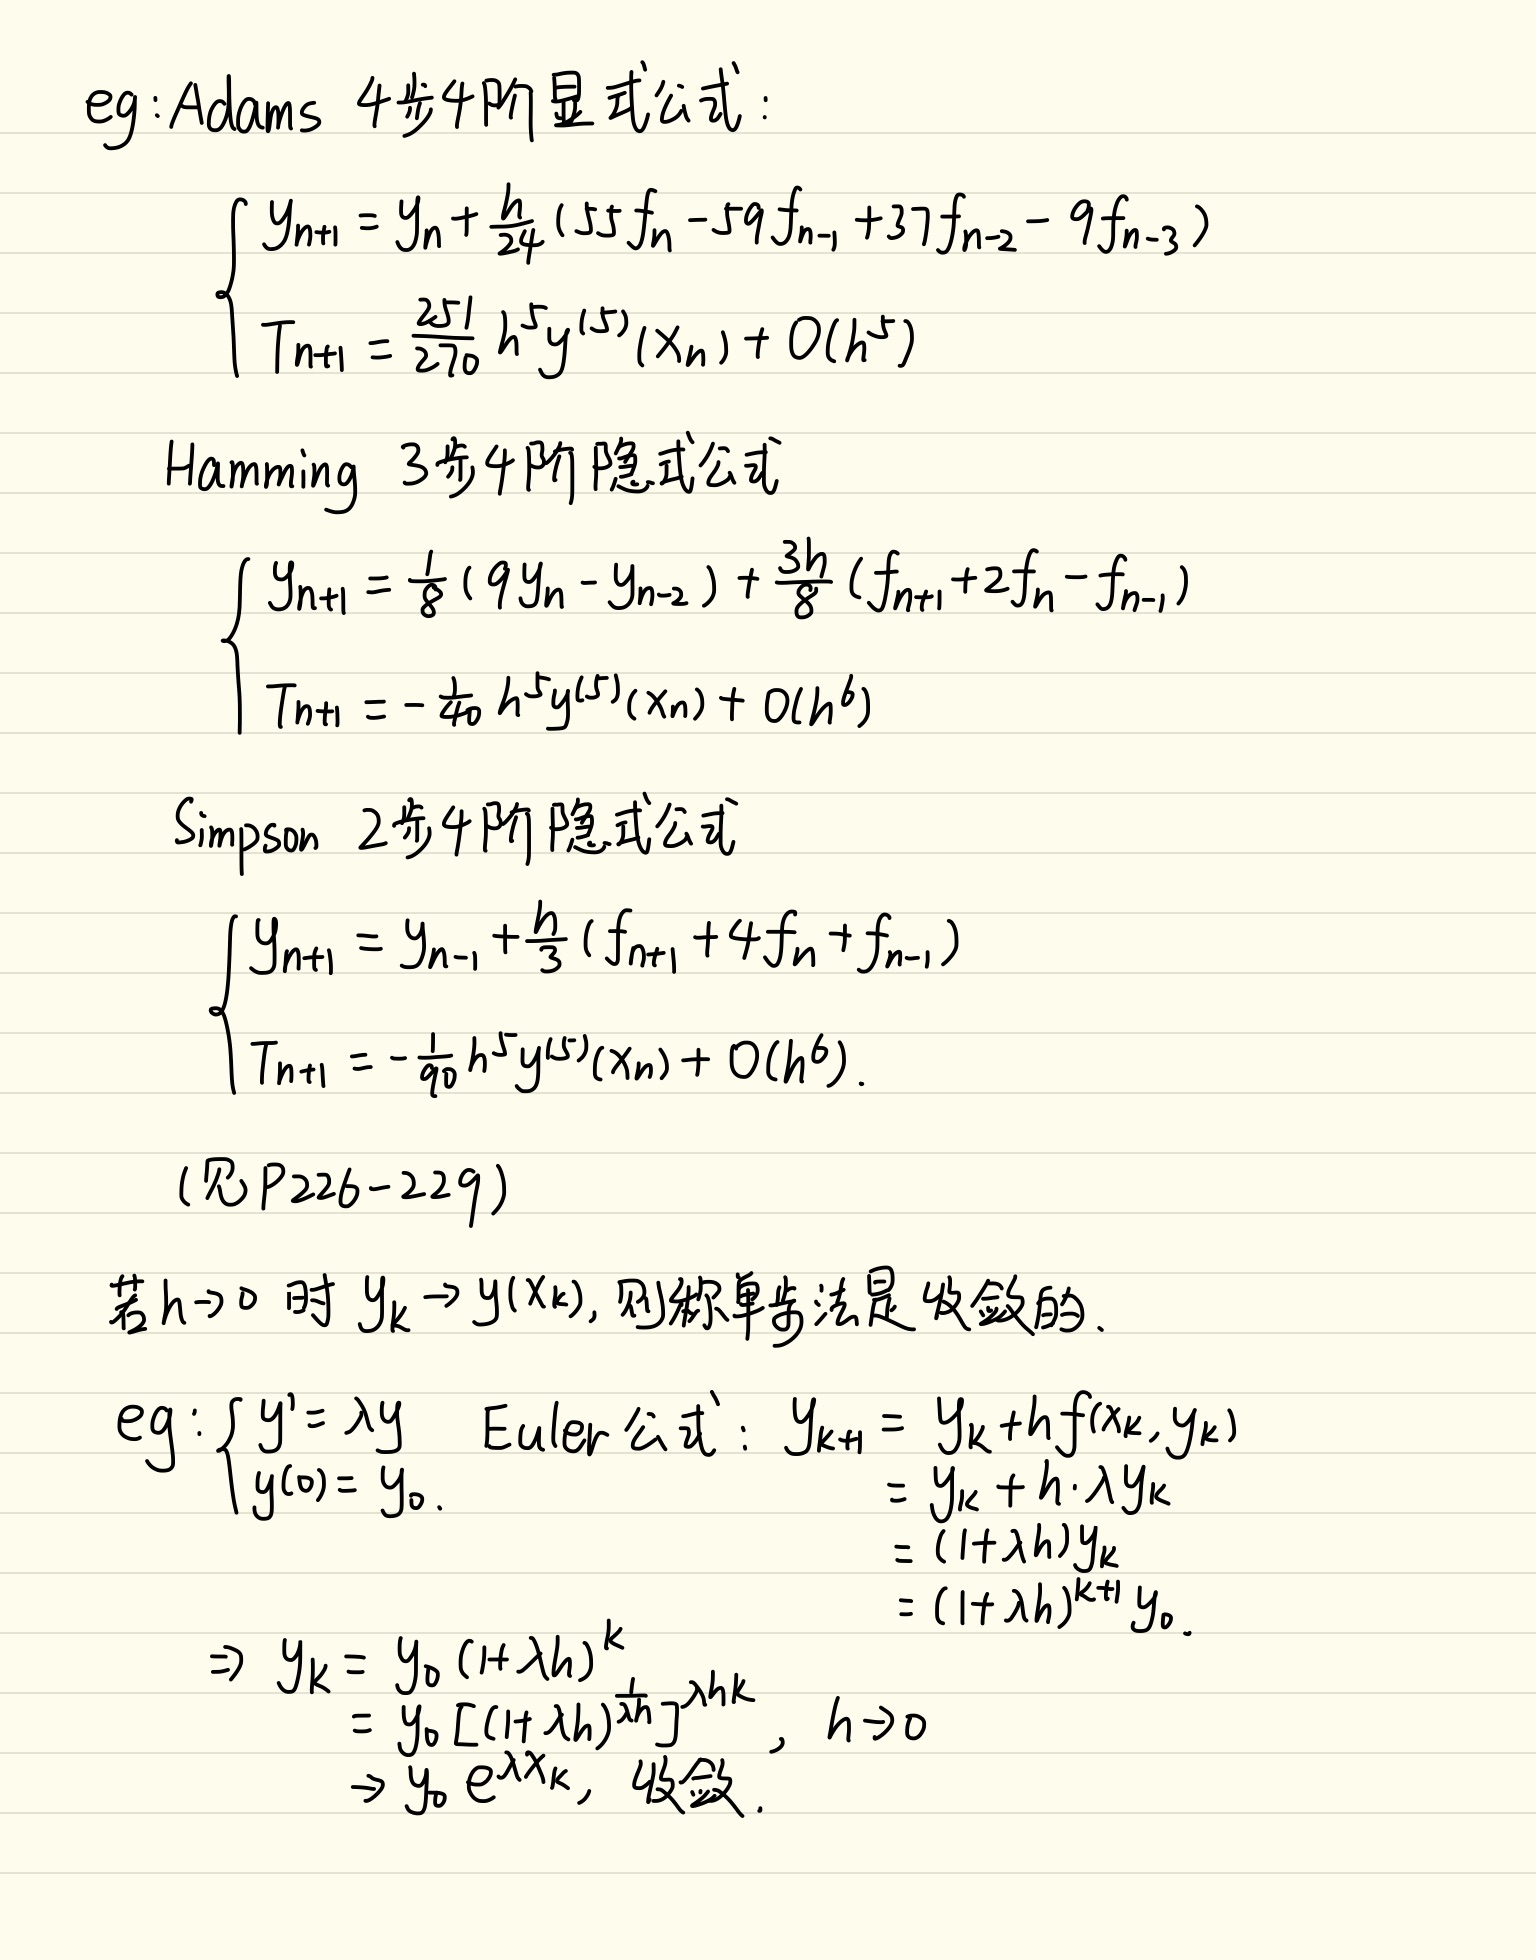 eg: Adams 4步4阶显式公式:
y_{n+1} = y_n + \frac{h}{24} (55f_n - 59f_{n-1} + 37f_{n-2} - 9f_{n-3})
T_{n+1} = \frac{251}{270} h^5 y^{(5)}(x_n) + O(h^5)
Hamming 3步4阶隐式公式
y_{n+1} = \frac{1}{8} (9y_n - y_{n-2}) + \frac{3h}{8} (f_{n+1} + 2f_n - f_{n-1})
T_{n+1} = -\frac{1}{40} h^5 y^{(5)}(x_n) + O(h^6)
Simpson 2步4阶隐式公式
y_{n+1} = y_{n-1} + \frac{h}{3} (f_{n+1} + 4f_n + f_{n-1})
T_{n+1} = -\frac{1}{90} h^5 y^{(5)}(x_n) + O(h^6).
(见P226-229)
若h→0 时 y_k → y(x_k), 则称单步法是收敛的.
eg: { y' = λy Euler公式: y_{k+1} = y_k + hf(x_k, y_k)
y(0) = y_0. = y_k + h·λy_k
= (1+λh)y_k
= (1+λh)^{k+1} y_0.
⇒ y_k = y_0 (1+λh)^k
= y_0 [(1+λh)^{\frac{1}{λh}}]^{λhk}, h→0
→ y_0 e^{λx_k}, 收敛.